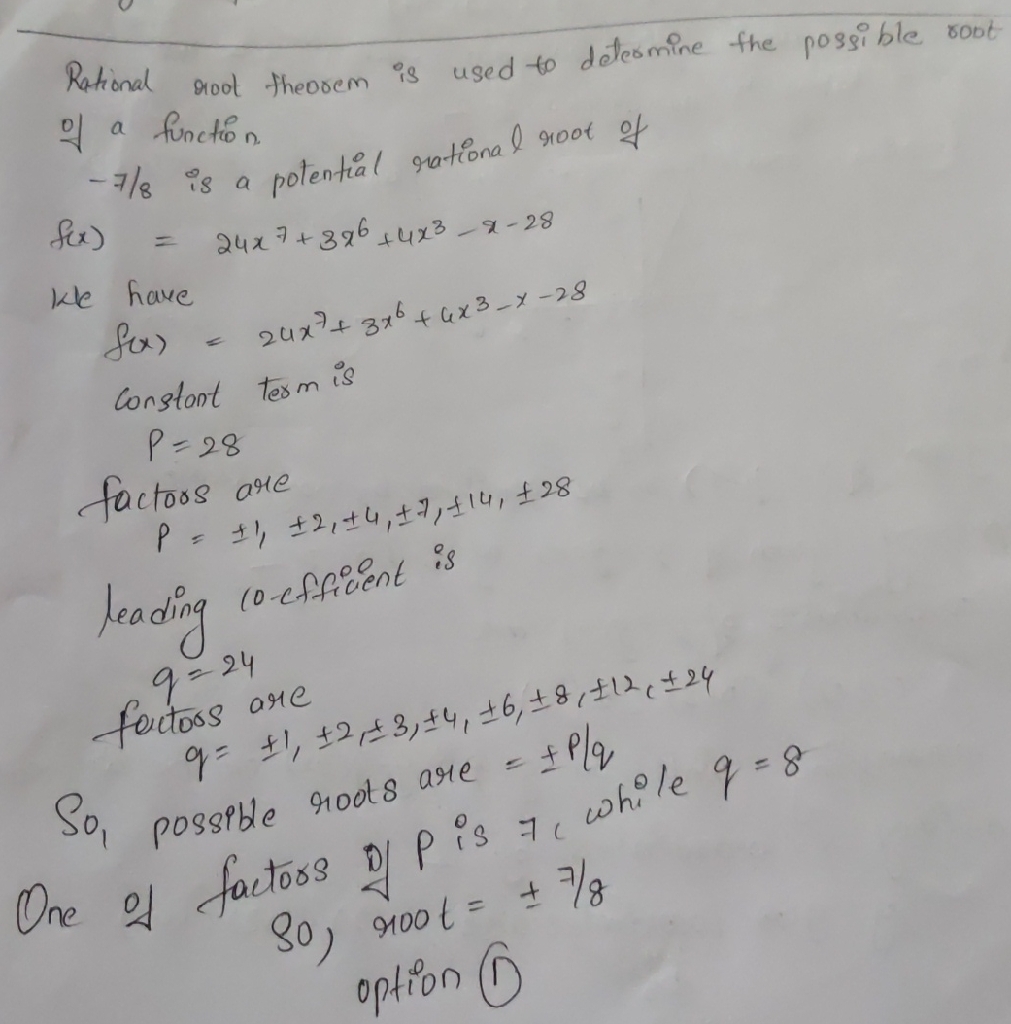 Rational root theorem is used to determine the possible root
of a function
-7/8 is a potential rational root of
f(x) = 24x⁷ + 3x⁶ + 4x³ - x - 28
We have
f(x) = 24x⁷ + 3x⁶ + 4x³ - x - 28
Constant term is
P = 28
factors are
P = ±1, ±2, ±4, ±7, ±14, ±28
leading co-efficient is
q = 24
factors are
q = ±1, ±2, ±3, ±4, ±6, ±8, ±12, ±24
So, possible roots are = ± P/q
One of factors of P is 7, while q = 8
So, root = ± 7/8
option D